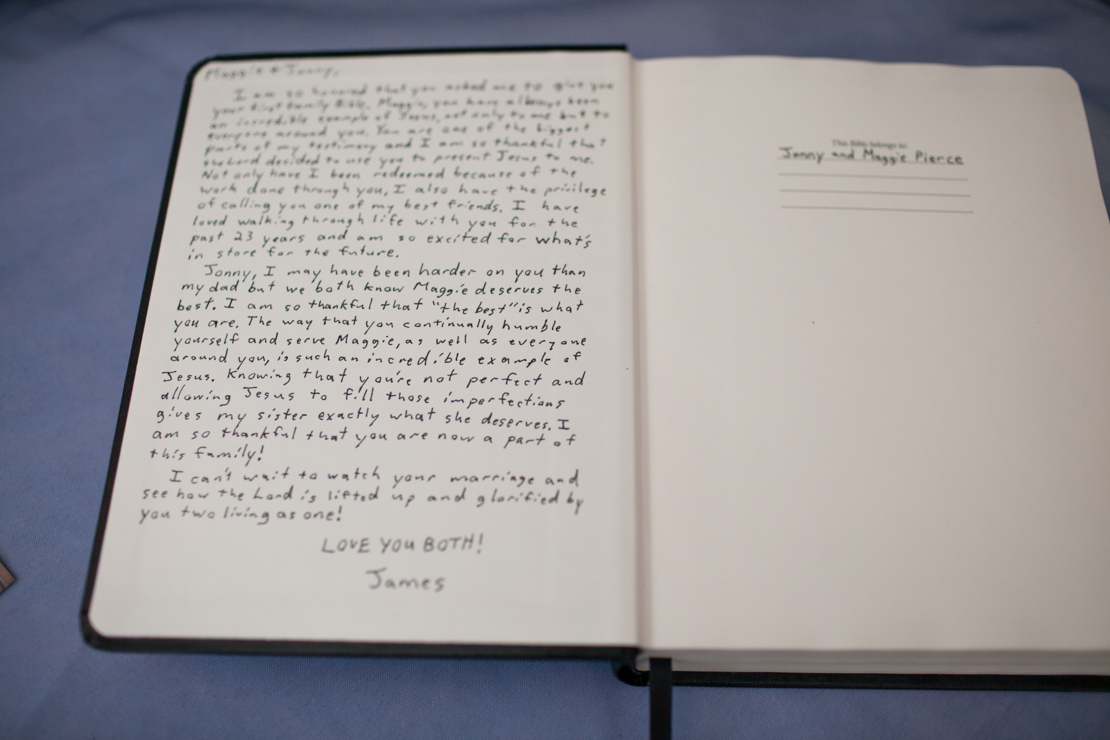 Maggie & Jonny,
I am so honored that you asked me to give you
your first family Bible. Maggie, you have always been
an incredible example of Jesus, not only to me but to
everyone around you. You are one of the biggest
parts of my testimony and I am so thankful that
the Lord decided to use you to present Jesus to me.
Not only have I been redeemed because of the
work done through you, I also have the privilege
of calling you one of my best friends. I have
loved walking through life with you for the
past 23 years and am so excited for what's
in store for the future.
Jonny, I may have been harder on you than
my dad but we both know Maggie deserves the
best. I am so thankful that "the best" is what
you are. The way that you continually humble
yourself and serve Maggie, as well as everyone
around you, is such an incredible example of
Jesus. Knowing that you're not perfect and
allowing Jesus to fill those imperfections
gives my sister exactly what she deserves. I
am so thankful that you are now a part of
this family!
I can't wait to watch your marriage and
see how the Lord is lifted up and glorified by
you two living as one!
LOVE YOU BOTH!
James
This Bible belongs to
Jonny and Maggie Pierce